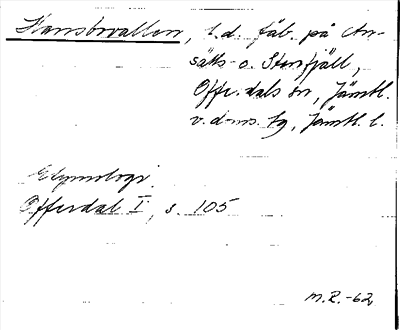 Hansbovallen, l.d. fäb. på An-
sätt- o. Storfjäll,
Offerdals sn, Jämtl.
v. d-ms. tg, Jämtl. l.
Etymologi
Offerdal I, s. 105
M.R.-62